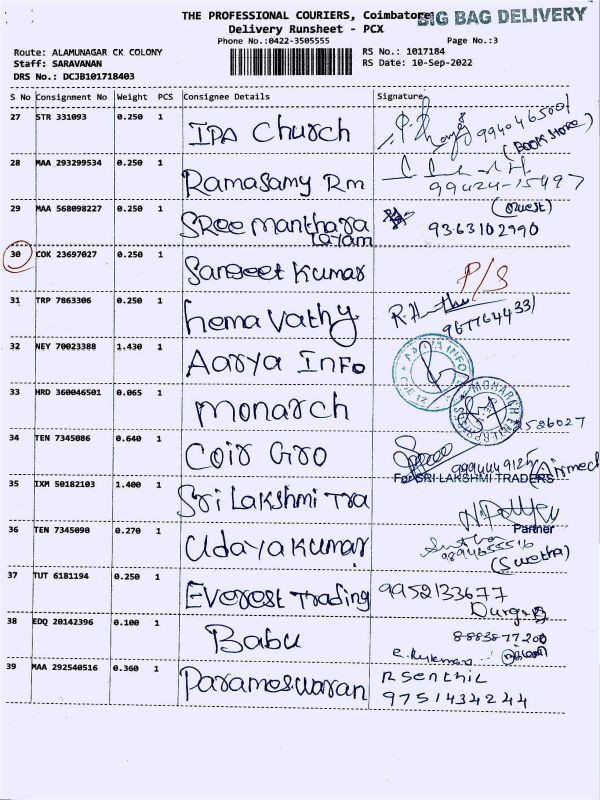 THE PROFESSIONAL COURIERS, Coimbatore
BIG BAG DELIVERY
Delivery Runsheet - PCX
Phone No.:0422-3505555 Page No.:3
Route: ALAMUNAGAR CK COLONY RS No.: 1017184
Staff: SARAVANAN RS Date: 10-Sep-2022
DRS No.: DCJB101718403
S No Consignment No Weight PCS Consignee Details Signature
27 STR 331093 0.250 1 IPA Church 9940465001
(BOOK STORE)
28 MAA 293299534 0.250 1 Ramasamy Rm 99424-15497
29 MAA 568098227 0.250 1 SRee Manthara (Guest)
Layam 9363102990
30 COK 23697027 0.250 1 Sangeet Kumar P/S
31 TRP 7863306 0.250 1 Hemavathy 9677644331
32 NEY 70023388 1.430 1 Aarya Info
33 HRD 360046501 0.065 1 Monarch
34 TEN 7345086 0.640 1 Coir Gro (Airmech)
For SRI LAKSHMI TRADERS
35 IXM 50182103 1.400 1 Sri Lakshmi Tra
Partner
36 TEN 7345090 0.270 1 Udayakumar 9894655516
(Swetha)
37 TUT 6181194 0.250 1 Everest Trading 9952133677
Durga
38 EDQ 20142396 0.100 1 Babu 8883877200
39 MAA 292540516 0.360 1 Parameswaran R Senthil
9751434244